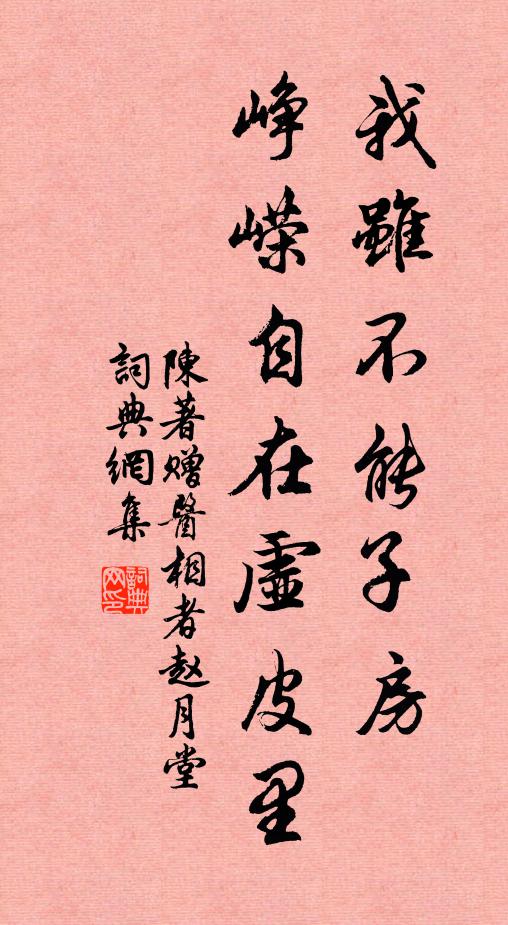 我雖不能子房
峥嵘自在虛皮里
陳著赠醫相者赵月堂
詞典網集
詞典网印